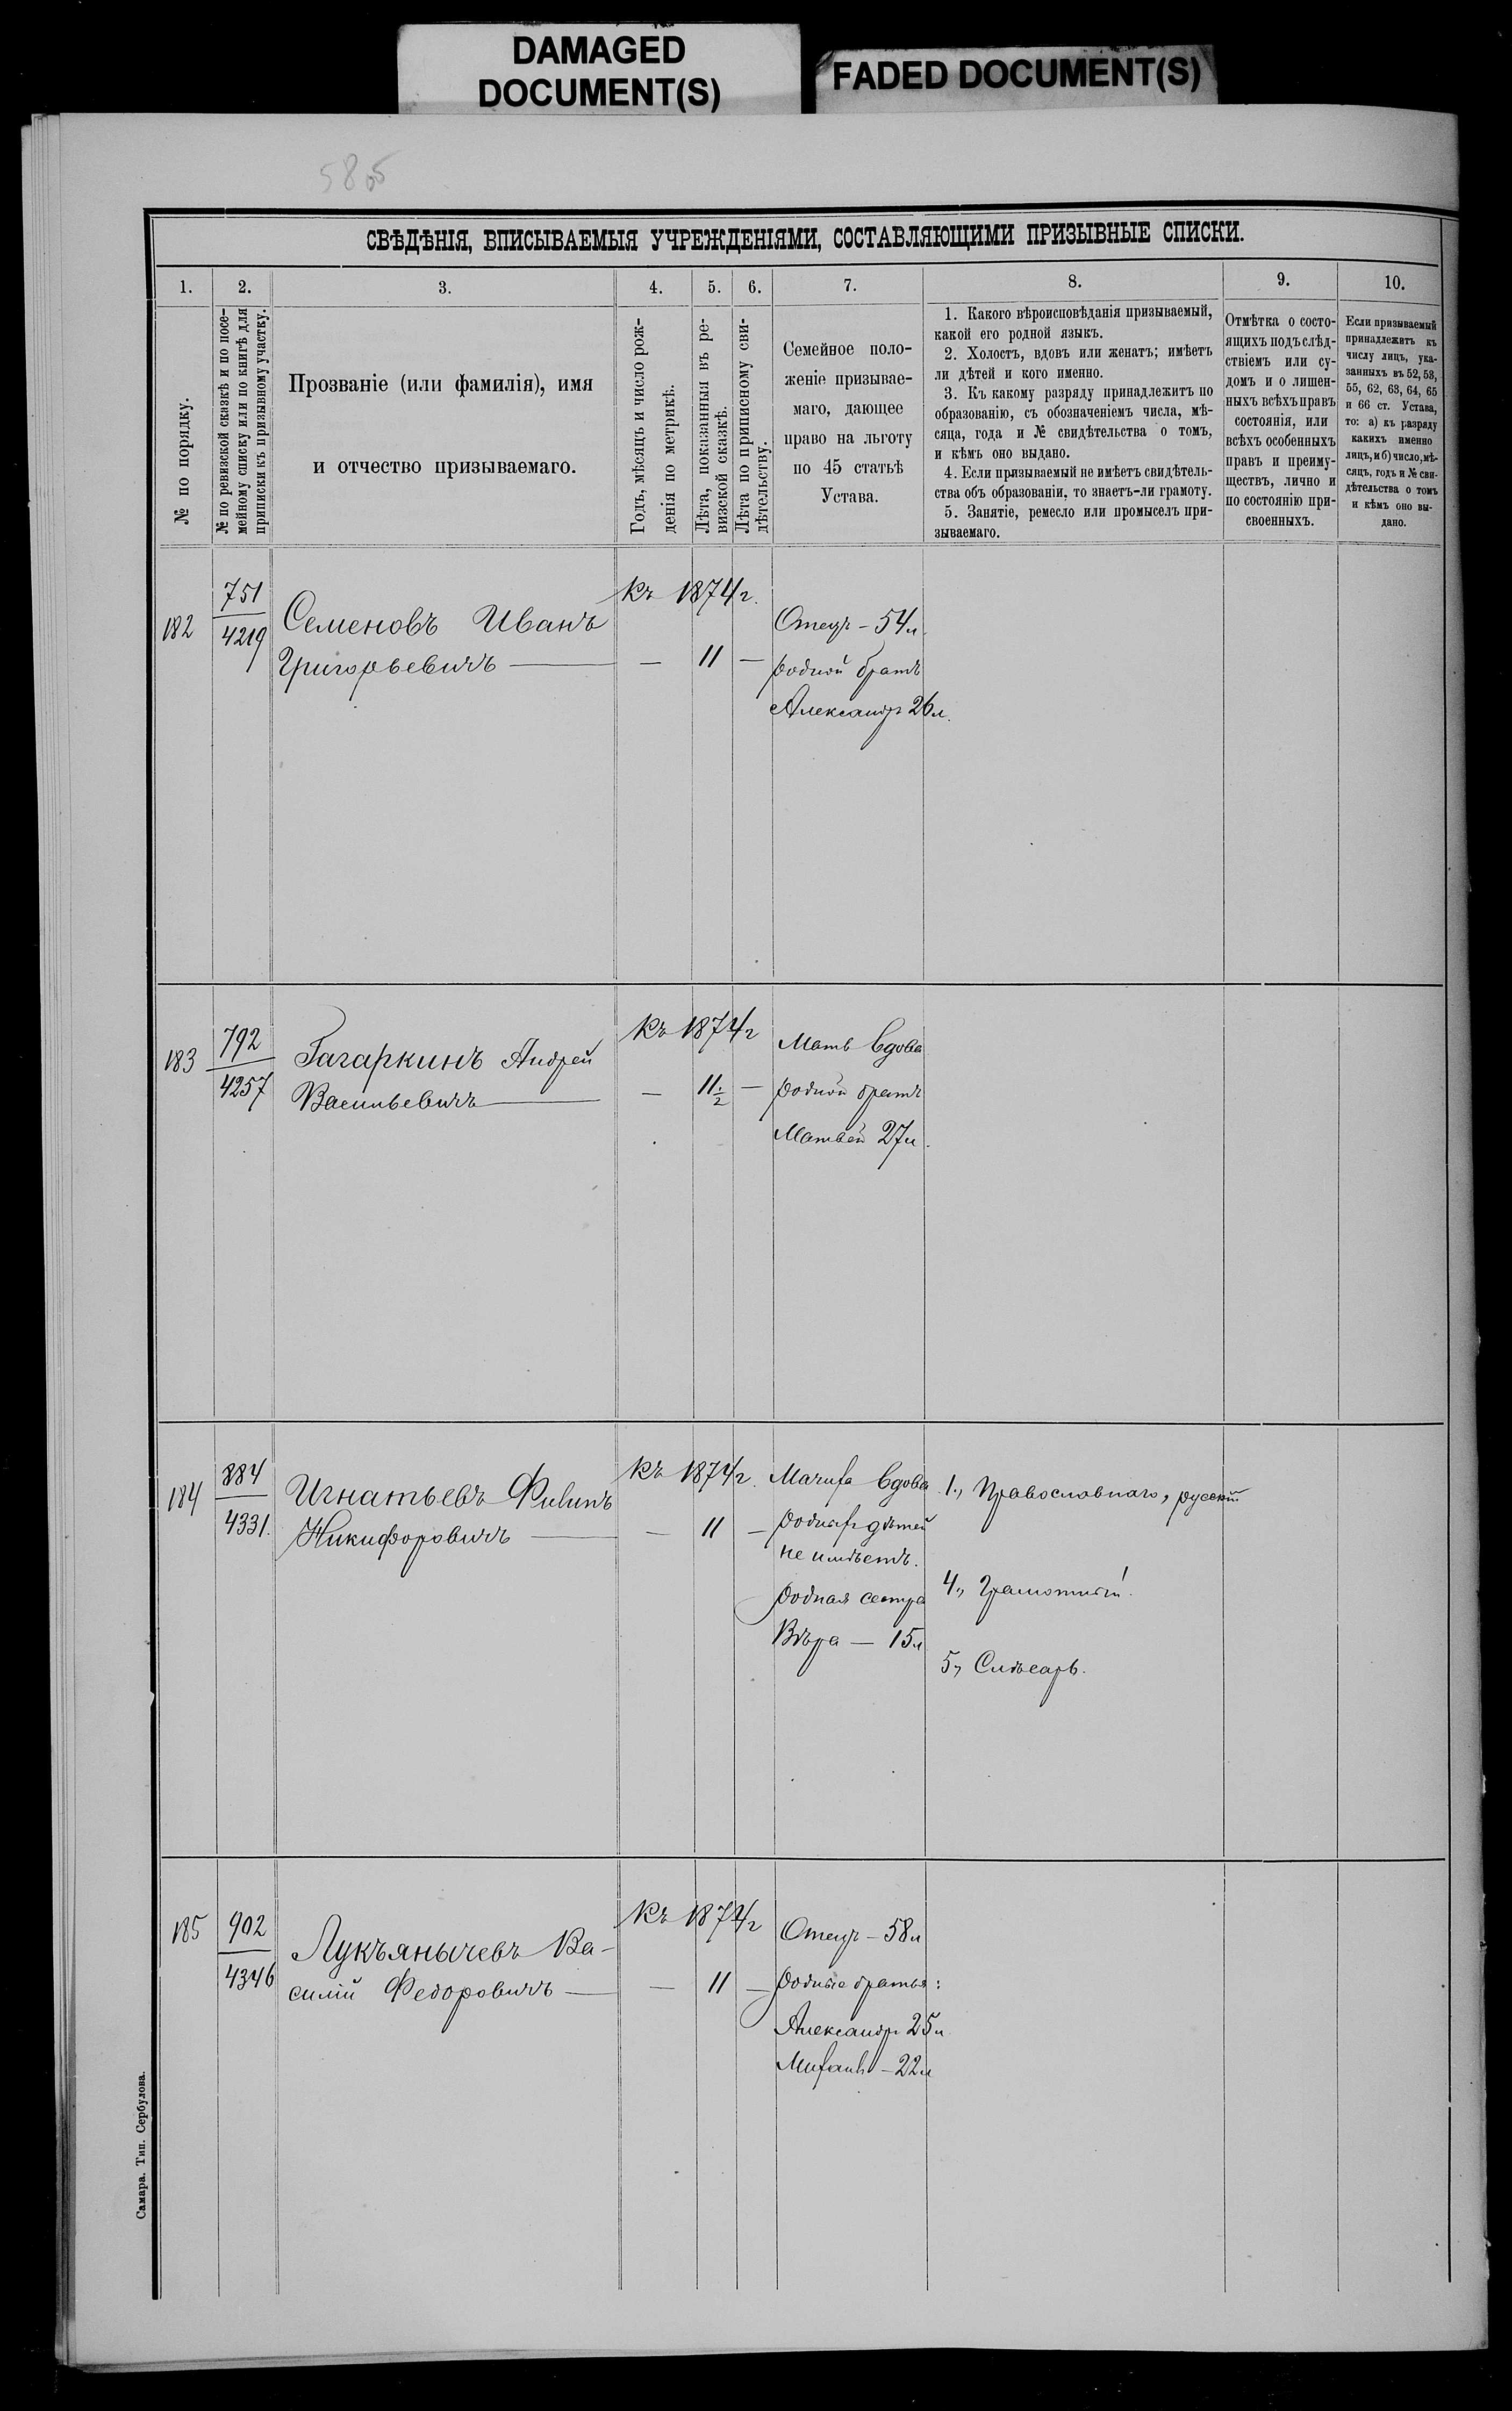 DAMAGED
DOCUMENT(S)
FADED DOCUMENT(S)
СВѢДѢНІЯ, ВПИСЫВАЕМЫЯ УЧРЕЖДЕНІЯМИ, СОСТАВЛЯЮЩИМИ ПРИЗЫВНЫЕ СПИСКИ.
1.
2.
3.
4.
5.
6.
7.
8.
9.
10.
№ по порядку.
№ по ревизской сказкѣ и по посе-
мейному списку или по книгѣ для
приписки къ призывному участку.
Прозваніе (или фамилія), имя
и отчество призываемаго.
Годъ, мѣсяцъ и число рож-
денія по метрикѣ.
Лѣта, показанныя въ ре-
визской сказкѣ.
Лѣта по приписному сви-
дѣтельству.
Семейное поло-
женіе призывае-
маго, дающее
право на льготу
по 45 статьѣ
Устава.
1. Какого вѣроисповѣданія призываемый,
какой его родной языкъ.
2. Холостъ, вдовъ или женатъ; имѣетъ
ли дѣтей и кого именно.
3. Къ какому разряду принадлежитъ по
образованію, съ обозначеніемъ числа, мѣ-
сяца, года и № свидѣтельства о томъ,
и кѣмъ оно выдано.
4. Если призываемый не имѣетъ свидѣтель-
ства объ образованіи, то знаетъ-ли грамоту.
5. Занятіе, ремесло или промыселъ при-
зываемаго.
Отмѣтка о состо-
ящихъ подъ слѣд-
ствіемъ или су-
домъ и о лишен-
ныхъ всѣхъ правъ
состоянія, или
всѣхъ особенныхъ
правъ и преиму-
ществъ, лично и
по состоянію при-
своенныхъ.
Если призываемый
принадлежитъ къ
числу лицъ, ука-
занныхъ въ 52, 53,
55, 62, 63, 64, 65
и 66 ст. Устава,
то: а) къ разряду
какихъ именно
лицъ, и б) число, мѣ-
сяцъ, годъ и № сви-
дѣтельства о томъ
и кѣмъ оно вы-
дано.
182
751
4219
Семеновъ Иванъ
Григорьевичъ —
къ 1874 г.
— 11 —
Отецъ – 54 л.
родной братъ
Александръ 26 л.
183
792
4257
Гагаркинъ Андрей
Васильевичъ —
къ 1874 г
— 11 1/2 —
Мать вдова
родной братъ
Матвѣй 27 л.
184
884
4331.
Игнатьевъ Филипъ
Никифоровичъ —
къ 1874 г.
— 11 —
Мачиха вдова
родныхъ дѣтей
не имѣетъ.
родная сестра
Вѣра — 15 л
1., Православнаго, русскій
4., Грамотный.
5., Слѣсарь.
185
902
4346
Лукъянычевъ Ва-
силій Федоровичъ —
къ 1874 г
— 11 —
Отецъ – 58 л
родные братья:
Александръ 25 л
Михаилъ – 22 л
Самара. Тип. Сербулова.